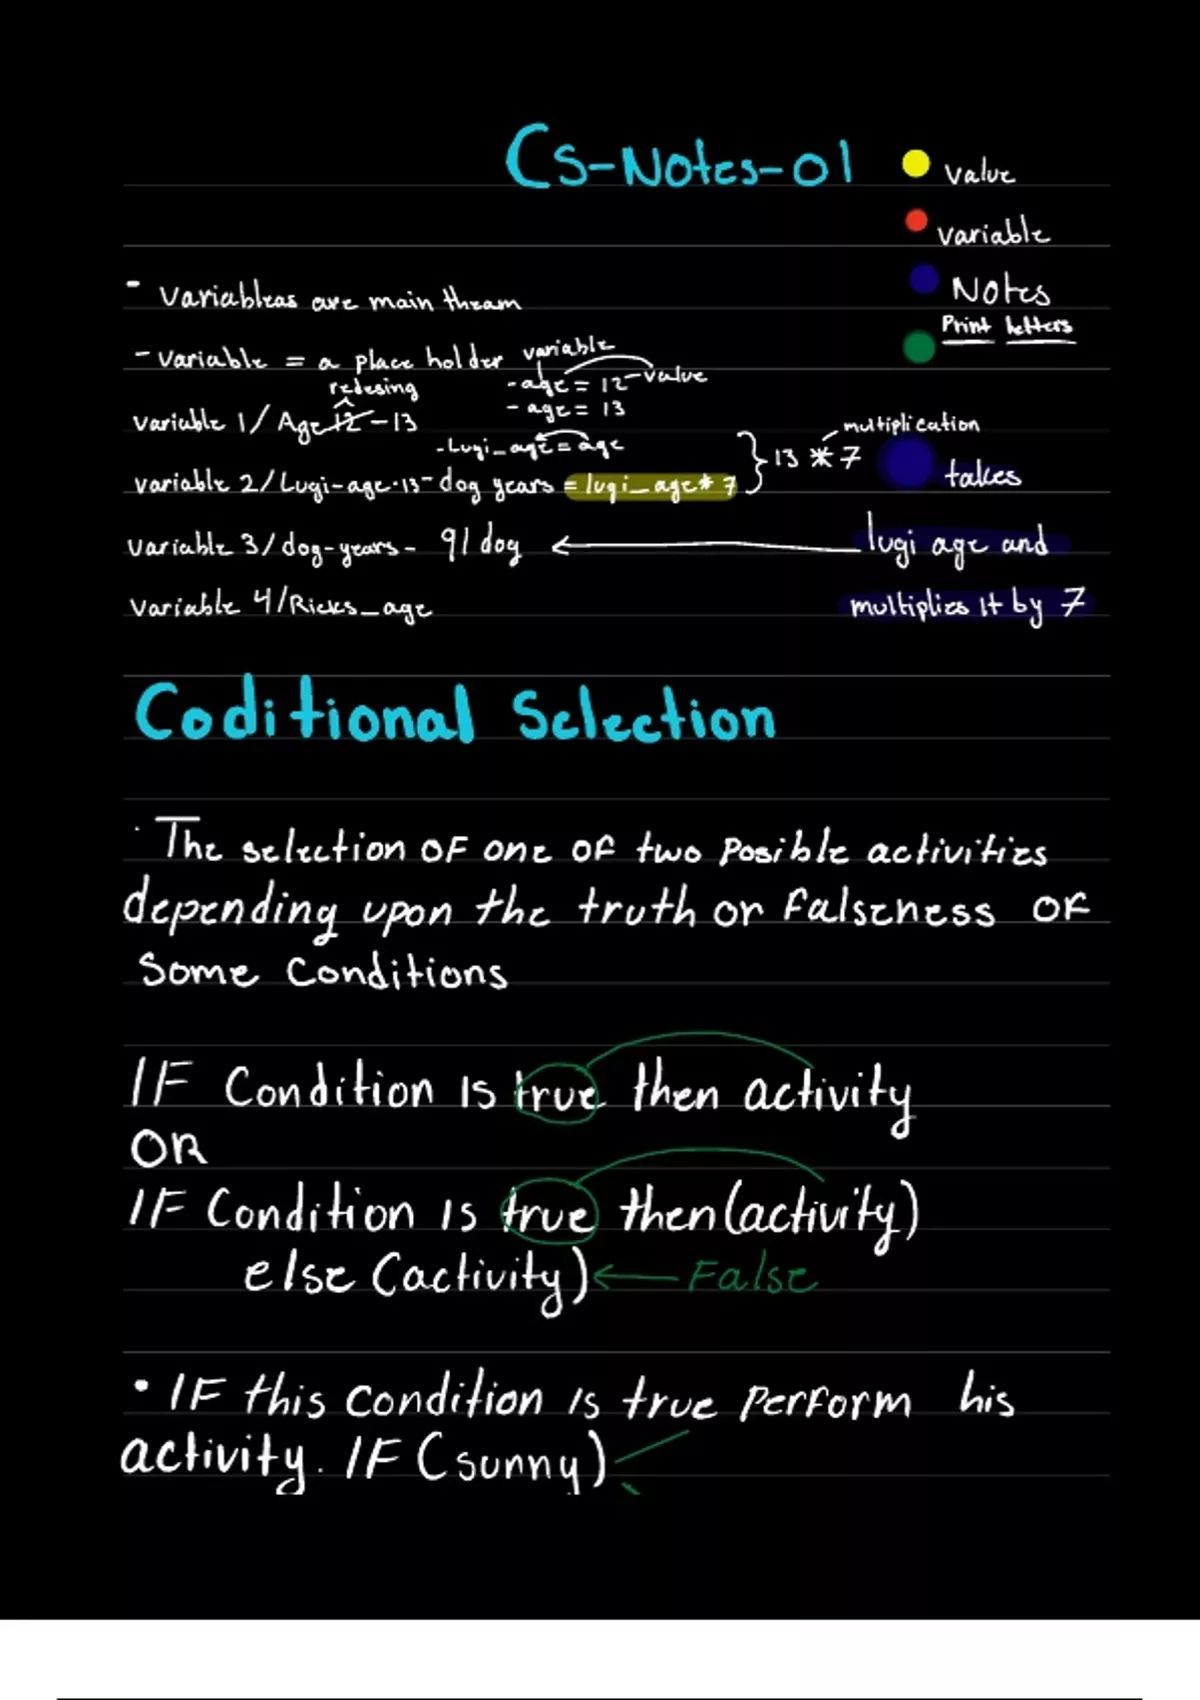 CS-Notes-01
value
variable
Notes
Print letters
- Variableas are main theam
- variable = a place holder
variable
- age = 12 - value
- age = 13
redesing
variable 1/ Age 12 - 13
- Lugi_age = age
variable 2/ Lugi-age·13- dog years = lugi_age* 7
} 13 * 7
multiplication
takes
variable 3/ dog-years- 91 dog
lugi age and
variable 4/Ricks_age
multiplies it by 7
Coditional Selection
· The selection of one of two posible activities
depending upon the truth or falseness of
some conditions
IF Condition is true then activity
OR
IF Condition is true then (activity)
else (activity) ← False
• IF this condition is true perform his
activity. IF (sunny)